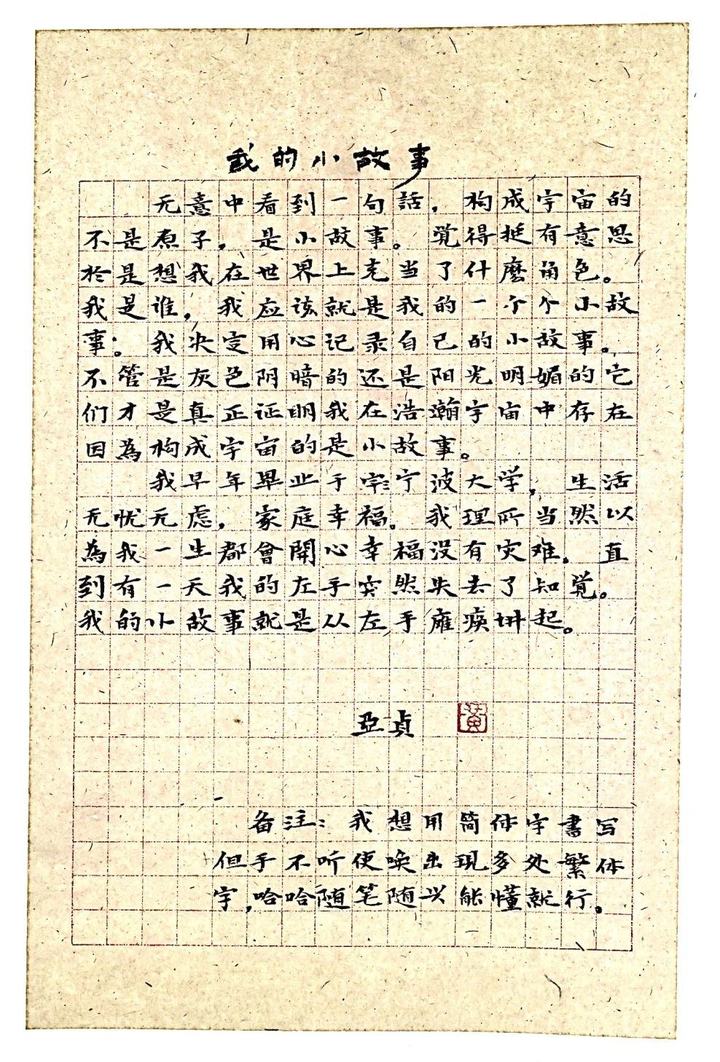 我的小故事
无意中看到一句話，构成宇宙的
不是原子，是小故事。觉得挺有意思
於是想我在世界上充当了什麽角色。
我是谁，我应该就是我的一个个小故
事。我决定用心记录自己的小故事。
不管是灰色阴暗的还是阳光明媚的它
们才是真正证明我在浩瀚宇宙中存在
因為构成宇宙的是小故事。
我早年畢业于宁波大学，生活
无忧无虑，家庭幸福。我理所当然以
為我一生都會開心幸福没有灾难。直
到有一天我的左手突然失去了知觉。
我的小故事就是从左手瘫痪讲起。
亞貞
黄
备注：我想用简体字書写
但手不听使唤出現多处繁体
字，哈哈随笔随兴能懂就行。